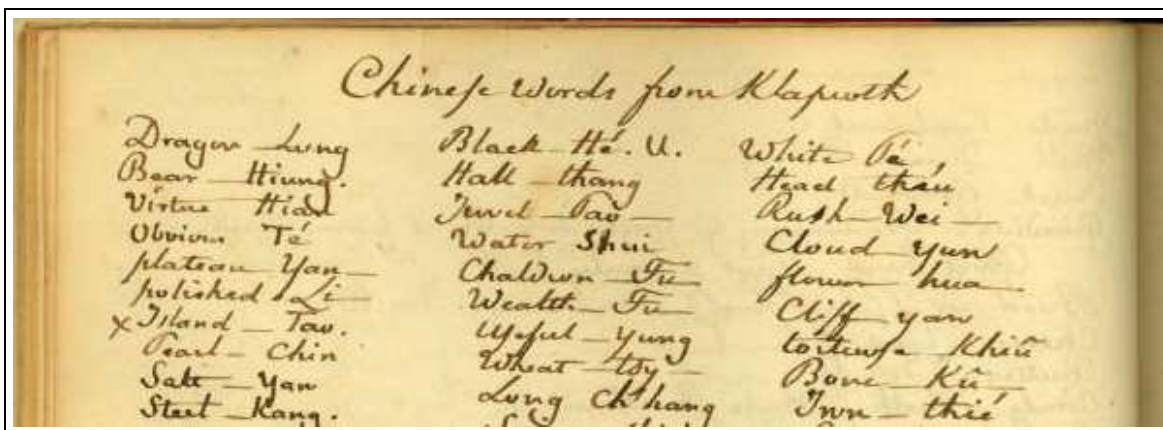 Chinese Words from Klaproth
Dragon - Lung
Bear - Hiung.
Virtue Hian
Obvious Té
plateau Yan -
polished Li -
x Island - Tao.
Pearl - Chin
Salt - Yan
Steel - Kang.
Black - Hé. U.
Hall - thang
Jewel - Pao -
Water Shui
Chaldron - Fu -
Wealth - Fu
Useful - Yung
Wheat - tsy -
Long Ch'hang
White Pé,
Head théu
Rush - Wei -
Cloud - Yun
flower hua -
Cliff - yan
tortuise - Khiū
Bone - Kŭ -
Iron - thié